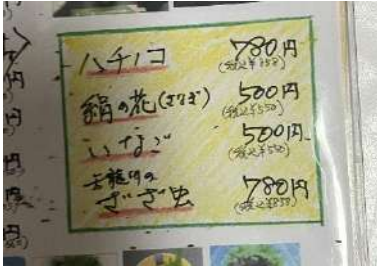 ハチノコ 780円
(税込¥858)
絹の花(さなぎ) 500円
(税込¥550)
いなご 500円
(税込¥550)
天龍川の
ざざ虫 780円
(税込¥858)
円
円
円
円